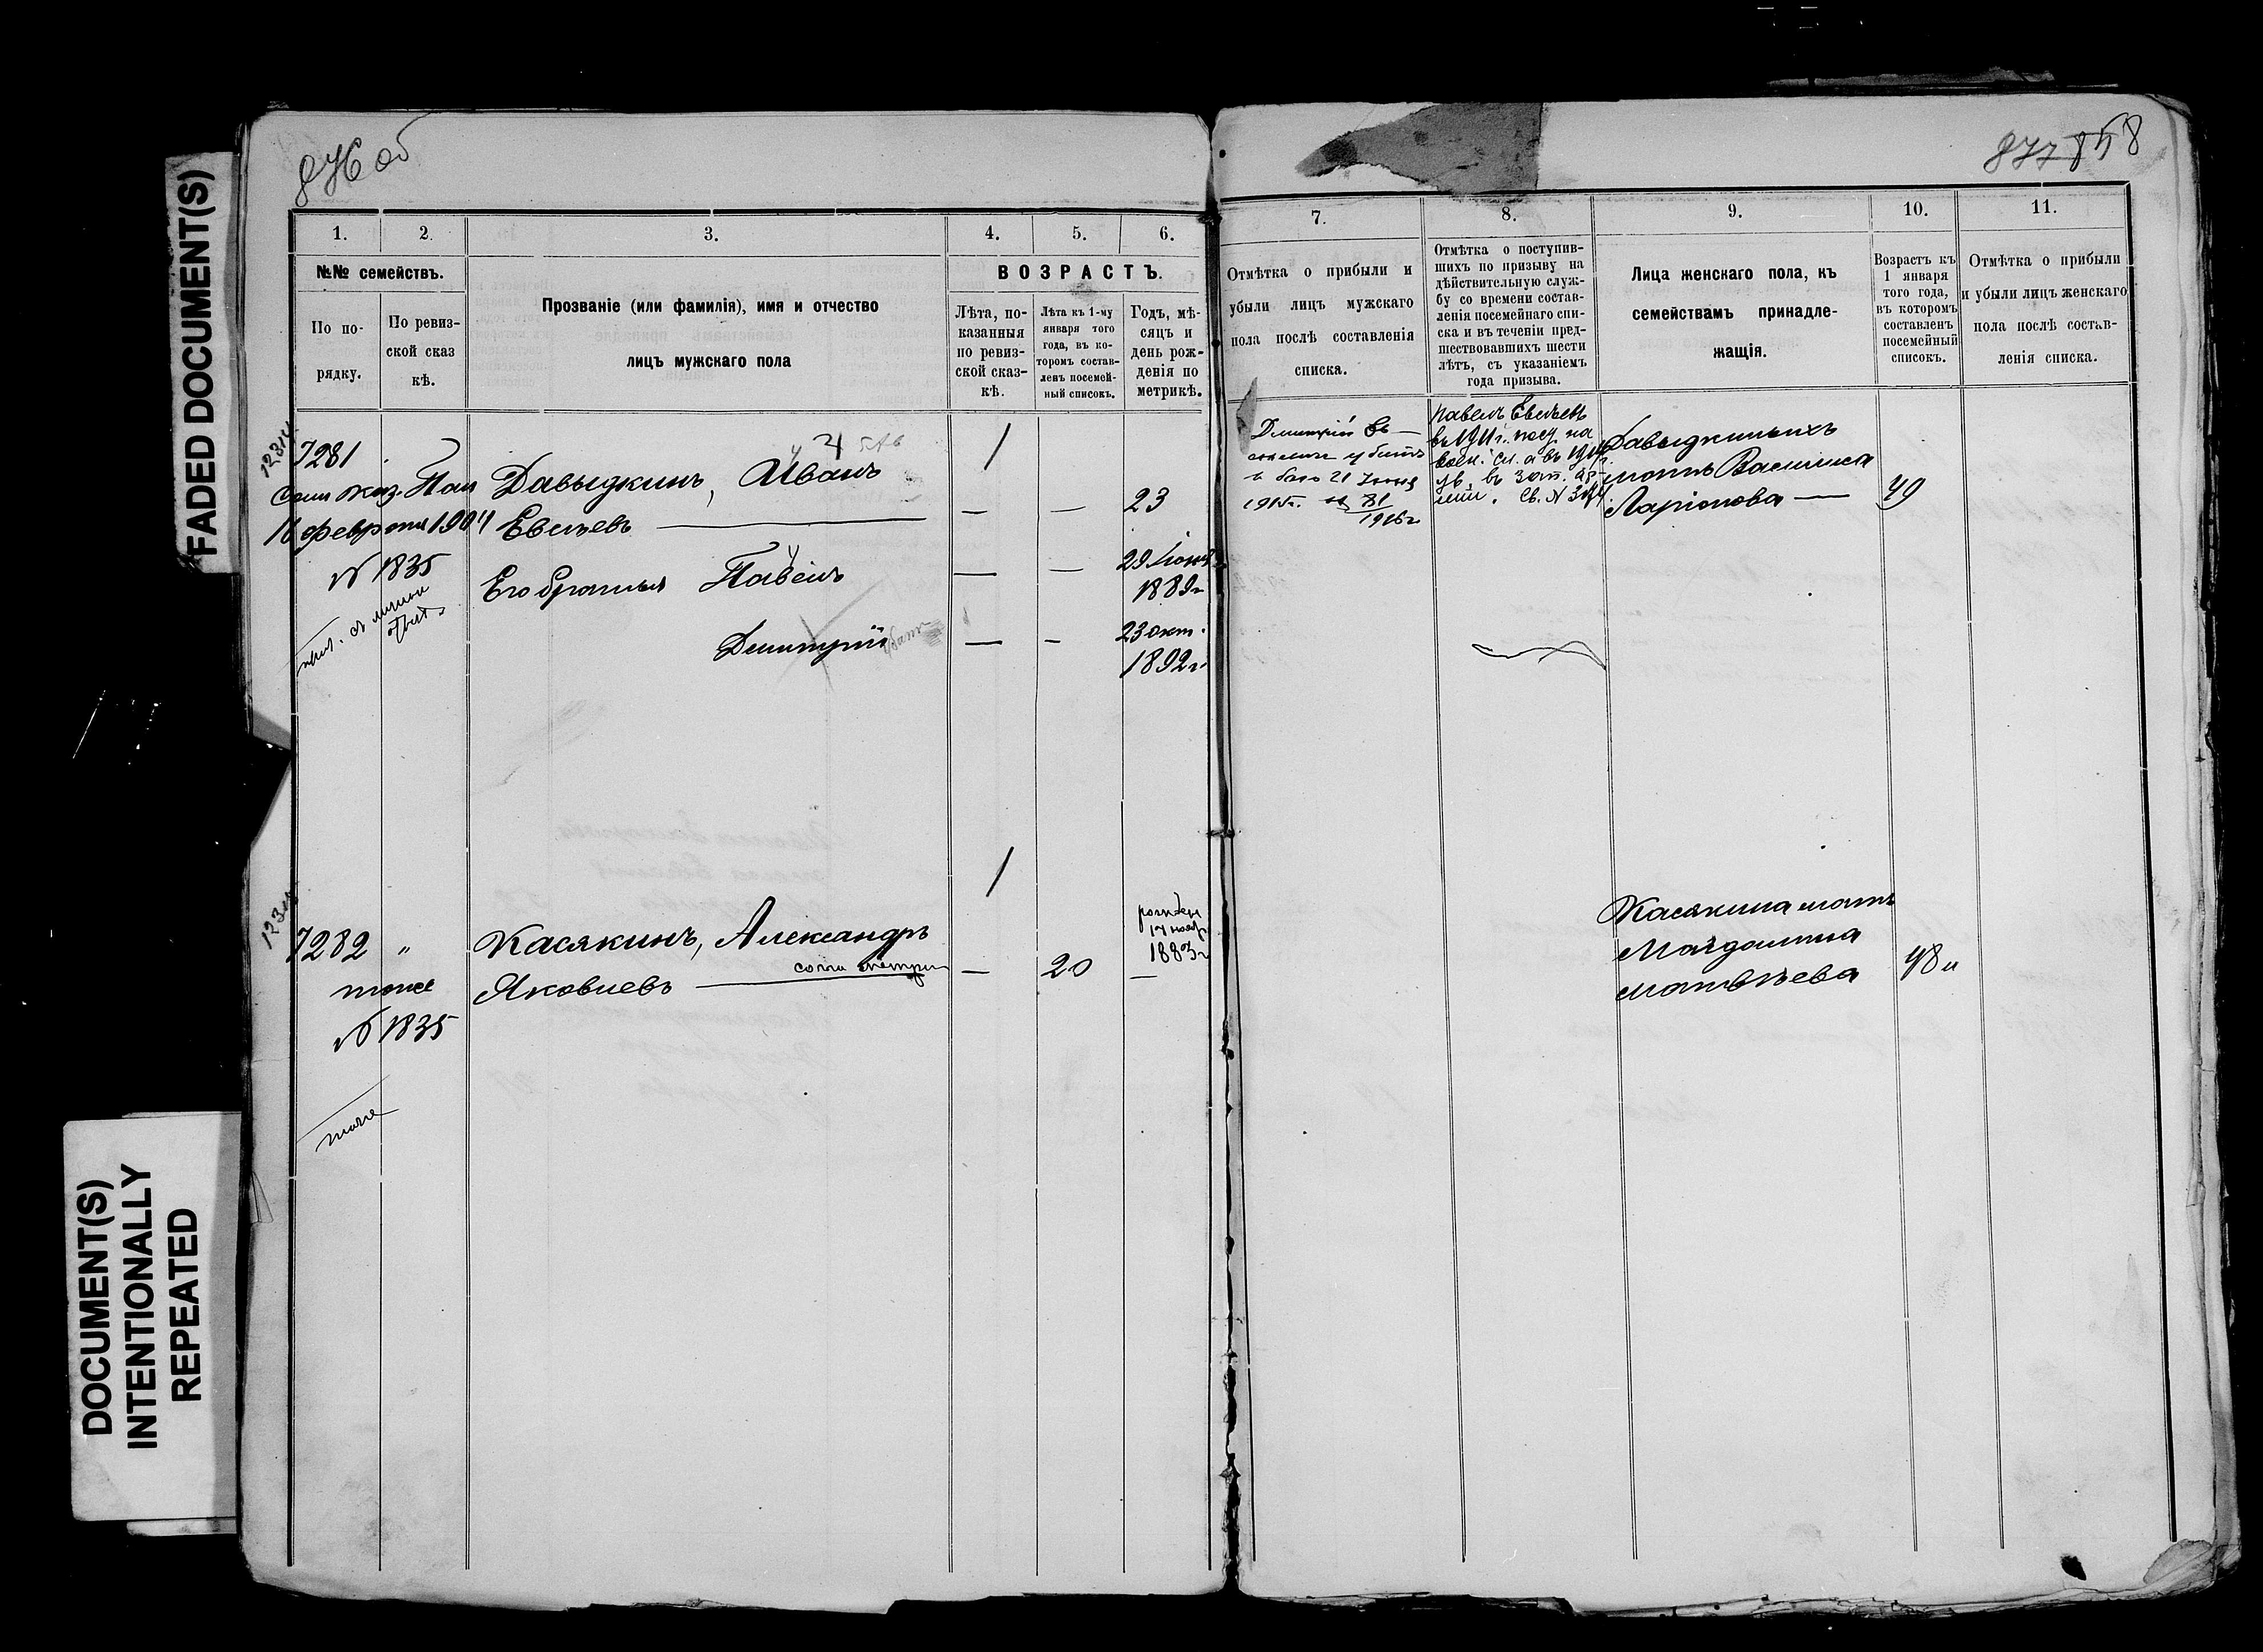 FADED DOCUMENT(S)
DOCUMENT(S)
INTENTIONALLY
REPEATED
876 об
1.
2.
3.
4.
5.
6.
№№ семействъ.
По по-
рядку.
По ревиз-
ской сказ
кѣ.
Прозваніе (или фамилія), имя и отчество
лицъ мужскаго пола
ВОЗРАСТЪ.
Лѣта, по-
казанныя
по ревиз-
ской сказ-
кѣ.
Лѣта къ 1-му
января того
года, въ ко-
торомъ состав-
ленъ посемей-
ный списокъ.
Годъ, мѣ-
сяцъ и
день рож-
денія по
метрикѣ.
7281
Каз. Пал
16 февраля 1904
№ 1835
Давыдкинъ, Иванъ
Евсѣевъ — — — 23
Его братья Павелъ — — 29 іюня
1889 г
Дмитрій — — 23 окт.
1892 г
7282 "
тоже
№ 1835
тоже
Касякинъ, Александръ
Яковлевъ — 20 —
17 нояб
1883 г
877 858
7.
8.
9.
10.
11.
Отмѣтка о прибыли и
убыли лицъ мужскаго
пола послѣ составленія
списка.
Отмѣтка о поступив-
шихъ по призыву на
дѣйствительную служ-
бу со времени состав-
ленія посемейнаго спи-
ска и въ теченіи пред-
шествовавшихъ шести
лѣтъ, съ указаніемъ
года призыва.
Лица женскаго пола, къ
семействамъ принадле-
жащія.
Возрастъ къ
1 января
того года,
въ которомъ
составленъ
посемейный
списокъ.
Отмѣтка о прибыли
и убыли лицъ женскаго
пола послѣ состав-
ленія списка.
Дмитрій Ев—
убитъ
в бою 21 Іюня
1915 г.
1916 г
Павелъ Евсѣевъ
въ 1911 г. пост на
воен. сл. а въ 1914 г.
ув. въ зап. ар-
міи. Св. №
Давыдкиныхъ
мать Василиса
Ларіонова — 49
Касякина мать
Магдалина
Матвѣева 48